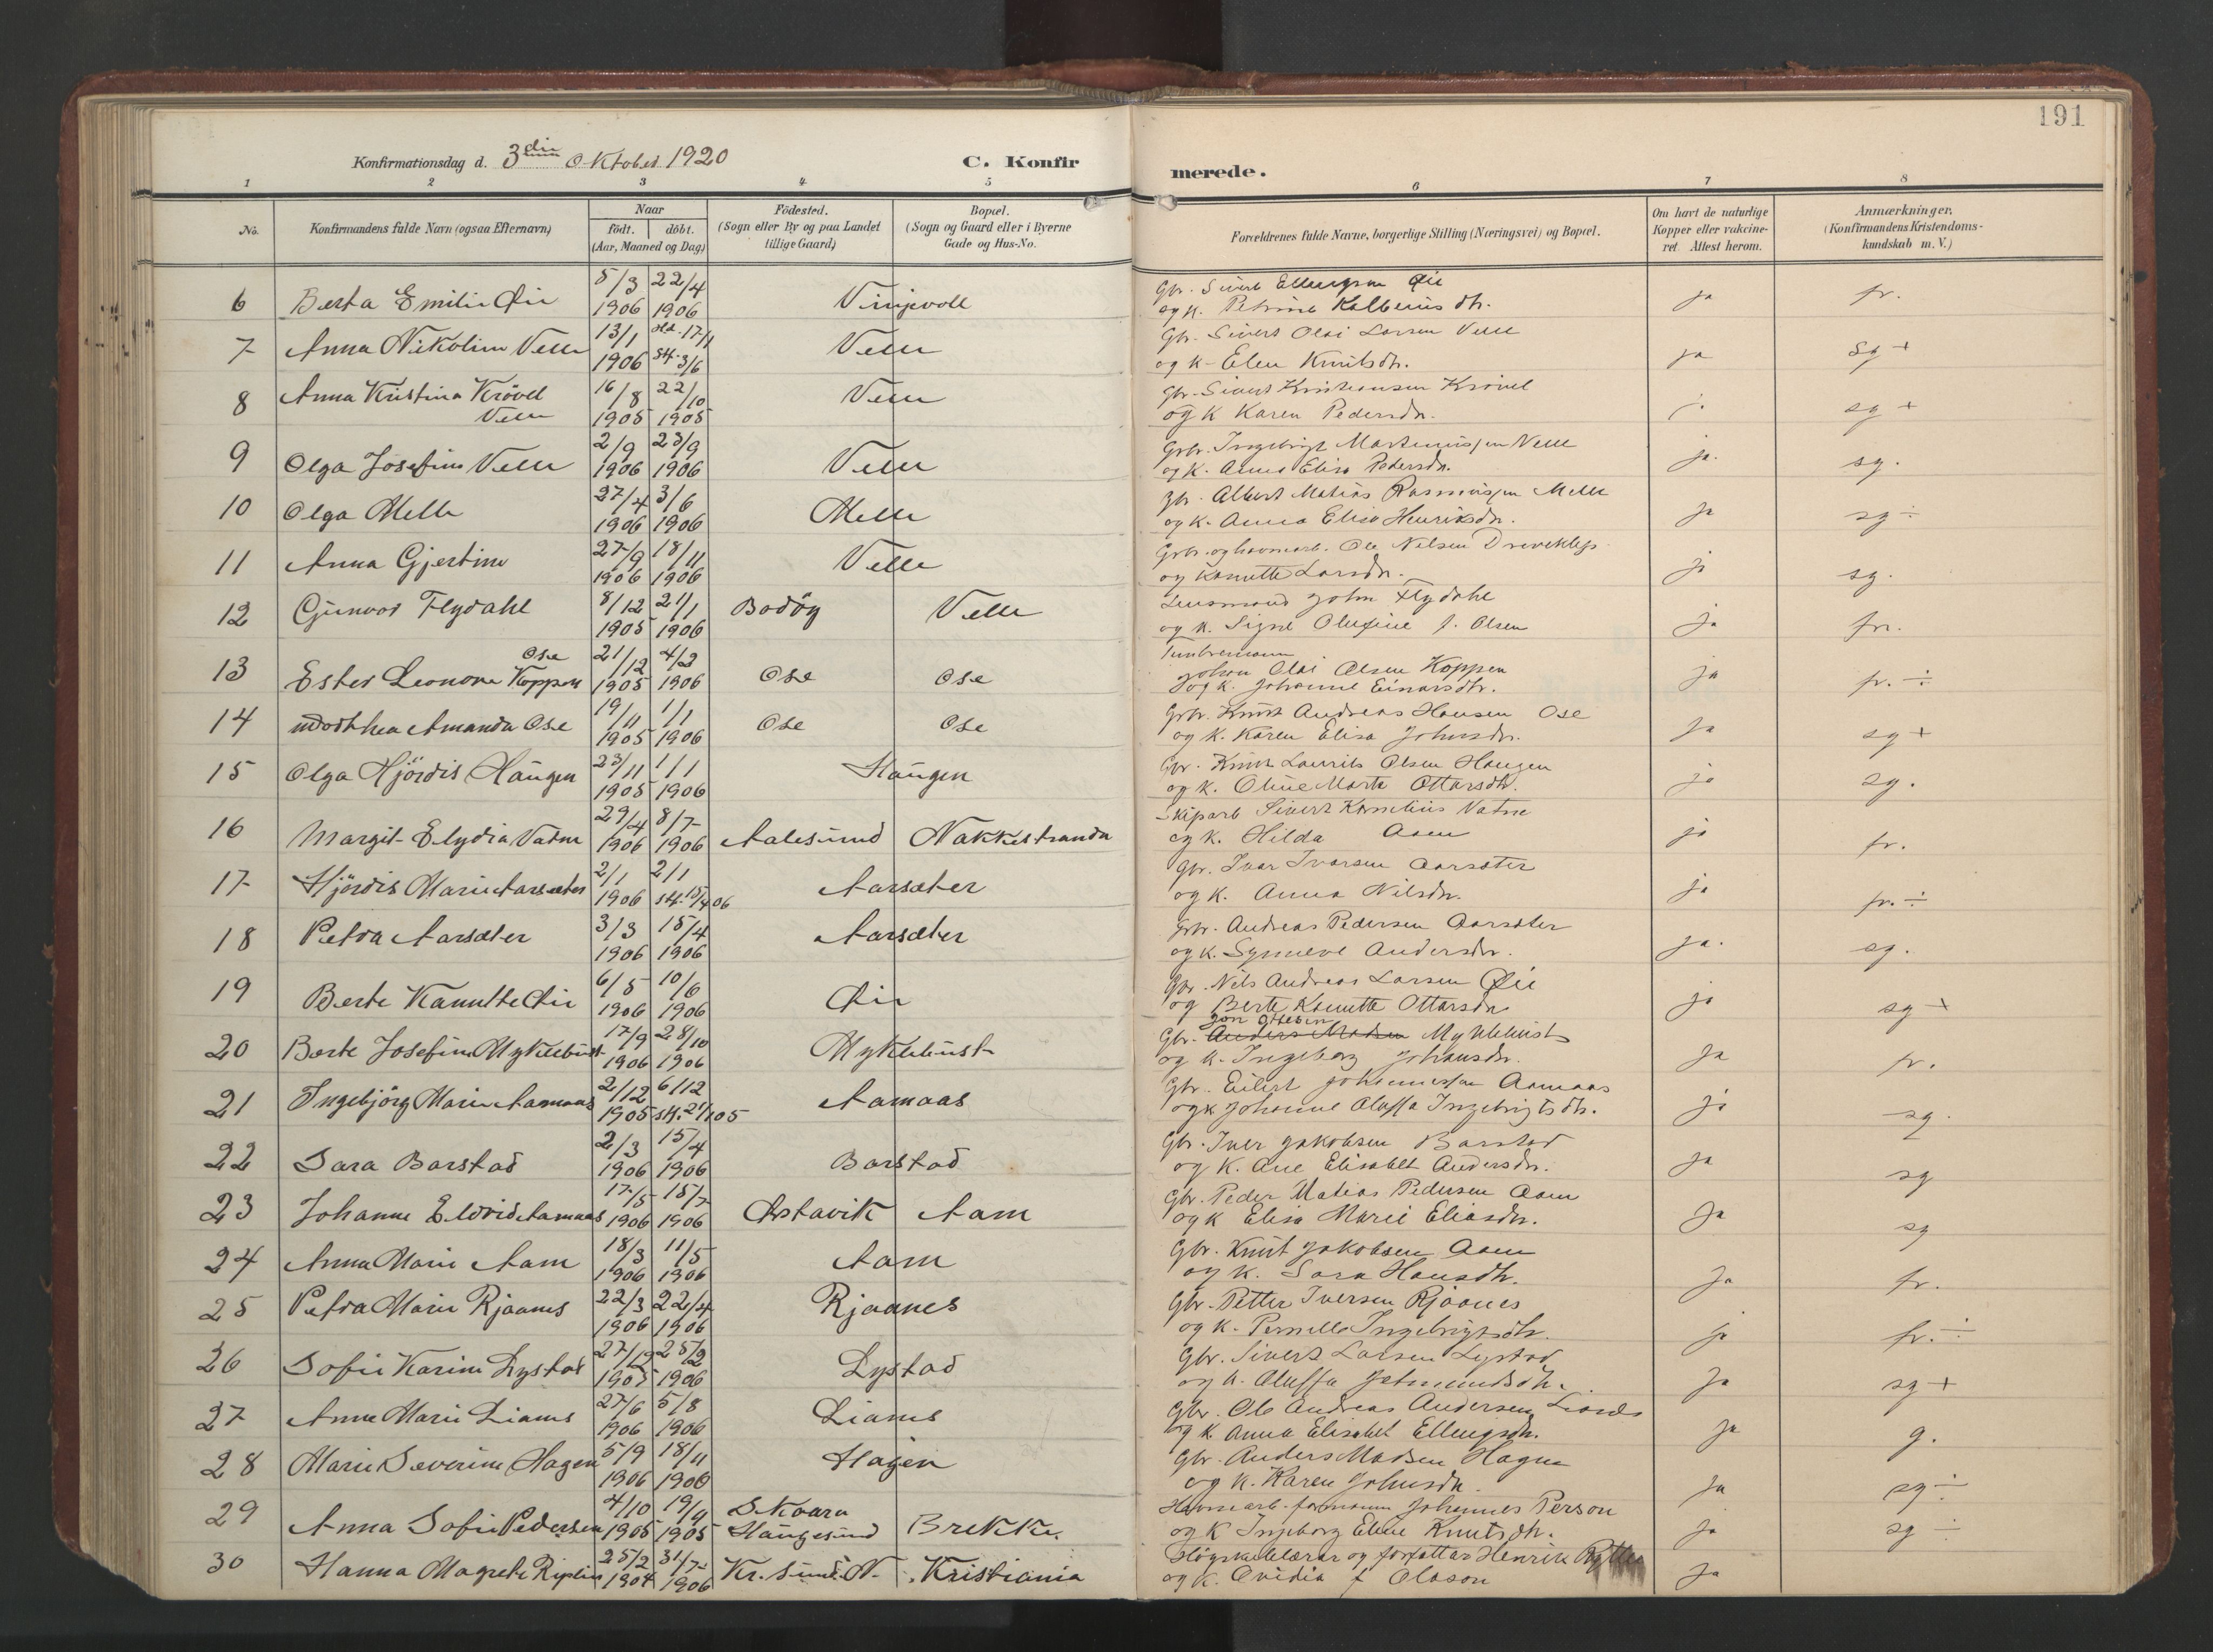 191
Konfirmationsdag d. 3die Oktober 1920
C. Konfirmerede.
1 2 3 4 5 6 7 8
No.
Konfirmandens fulde Navn (ogsaa Efternavn)
Naar
födt. döbt.
(Aar, Maaned og Dag)
Födested.
(Sogn eller By og paa Landet
tillige Gaard)
Bopæl.
(Sogn og Gaard eller i Byerne
Gade og Hus-No.
Forældrenes fulde Navne, borgerlige Stilling (Næringsvei) og Bopæl.
Om havt de naturlige
Kopper eller vakcine-
ret. Attest herom.
Anmærkninger.
(Konfirmandens Kristendoms-
kundskab m. V.)
6 Berta Emilie Öie 5/3 1906 22/4 1906 Vinjevoll Gbr. Sivert Ellingsen Öie
og K. Petrine Kolbeins dtr. ja fr.
7 Anna Nikoline Velle 13/1 1906 17/1 st. 3/6 Velle Gbr. Sivert Olai Larsen Velle
og K. Elen Knutsdtr. ja sg +
8 Anna Kristina Krövel
Velle 16/8 1905 22/10 1905 Velle Gbr. Sivert Kristiansen Krövel
og K Karen Pedersdtr. sg +
9 Olga Josefine Velle 2/9 1906 23/9 1906 Velle Gbr. Ingebrigt Martinussen Velle
og K. Anne Elisa Pedersdtr. ja. sg.
10 Olga Melle 27/4 1906 3/6 1906 Melle Gbr. Albert Matias Rasmussen Melle
og K. Anna Elisa Henriksdtr. ja sg ÷
11 Anna Gjertine 27/9 1906 18/11 1906 Velle Gbr. og havnearb. Ole Nilsen Dreveklep
og Kanutte Larsdtr. ja sg.
12 Gunvor Flydahl 8/12 1905 21/1 1906 Bodög Velle Lensmand John Flydahl
og K. Signe Olufine f. Olsen ja fr.
13 Ester Leonora Ose Koppen 21/12 1905 4/2 1906 Ose Ose Tümbremann
Johan Olai Olsen Koppen
og K. Johanne Einarsdtr. ja fr. ÷
14 Dorthea Amanda Ose 19/11 1905 1/1 1906 Ose Ose Gbr. Knut Andreas Hansen Ose
og K. Karen Elisa Johnsdtr. ja sg +
15 Olga Hjördis Haugen 23/11 1905 1/1 1906 Haugen Gbr. Knut Laurits Olsen Haugen
og K. Oline Marta Ottarsdtr. ja sg.
16 Margit Elydia Vatne 29/4 1906 8/7 1906 Aalesund Nakkestranda Skiparb Sivert Kornelius Vatne
og K. Hilda Aam ja fr.
17 Hjördis Marie Aarsæter 2/1 1906 2/1 st. 15/4 06 Aarsæter Gbr. Ivar Ivarsen Aarsæter
og K. Anna Nilsdtr. ja fr. ÷
18 Petra Aarsæter 3/3 1906 15/4 1906 Aarsæter Gbr. Andreas Pedersen Aarsæter
og K. Synneve Andersdtr. ja. sg.
19 Berte Kanutte Öie 6/5 1906 10/6 1906 Öie Gbr. Nils Andreas Larsen Öie
og Berte Kanutte Ottarsdtr ja sg +
20 Berte Josefine Myklebust 17/9 1906 28/10 1906 Myklebust Gbr. Anders Madsen Myklebust
og K. Ingeborg Johansdtr. ja fr.
21 Ingebjörg Marie Aamaas 2/12 1905 6/12 st. 21/1 05 Aamaas Gbr. Eilert Johannessen Aamaas
og K Johanne Oluffa Ingebrigtsdtr. ja sg.
22 Sara Barstad 2/3 1906 15/4 1906 Barstad Gbr. Iver Jakobsen Barstad
og K. Ane Elisabet Andersdtr. ja sg
23 Johanne Eldrid Aamaas 17/5 1906 15/7 1906 Örstavik Aam Gbr. Peder Matias Pedersen Aam
og K Elisa Marie Eliasdtr. ja sg
24 Anna Marie Aam 18/3 1906 11/5 1906 Aam Gbr. Knut Jakobsen Aam
og K. Sara Hansdtr. ja fr.
25 Petra Marie Rjaanes 22/3 1906 22/4 1906 Rjaanes Gbr. Petter Iversen Rjaanes
og K. Pernelle Ingebrigtsdtr. ja fr. ÷
26 Sofie Karine Lystad 27/12 1905 25/2 1906 Lystad Gbr. Sivert Larsen Lystad
og K. Oluffa Jetmundsdtr. ja sg +
27 Anne Marie Lianes 27/6 1906 5/8 1906 Lianes Gbr. Ole Andreas Andersen Lianes
og K Anna Elisabet Ellingsdtr. ja g.
28 Marie Severine Hagen 5/9 1906 18/11 1906 Hagen Gbr. Anders Madsen Hagen
og K. Karen Johnsdtr. ja sg ÷
29 Anna Sofie Pedersen 4/10 1905 19/9 1905 Skaara
Haugesund Brekke. Havnearb. formann Johannes Person
og K Ingeborg Eline Knutsdtr. ja sg ÷
30 Hanna Magrete 25/2 1904 31/7 1906 Kr. sund. N. Kristiania Högskulelærar og forfattar Henrik Rytter
og K. Ovidia f Olason ja